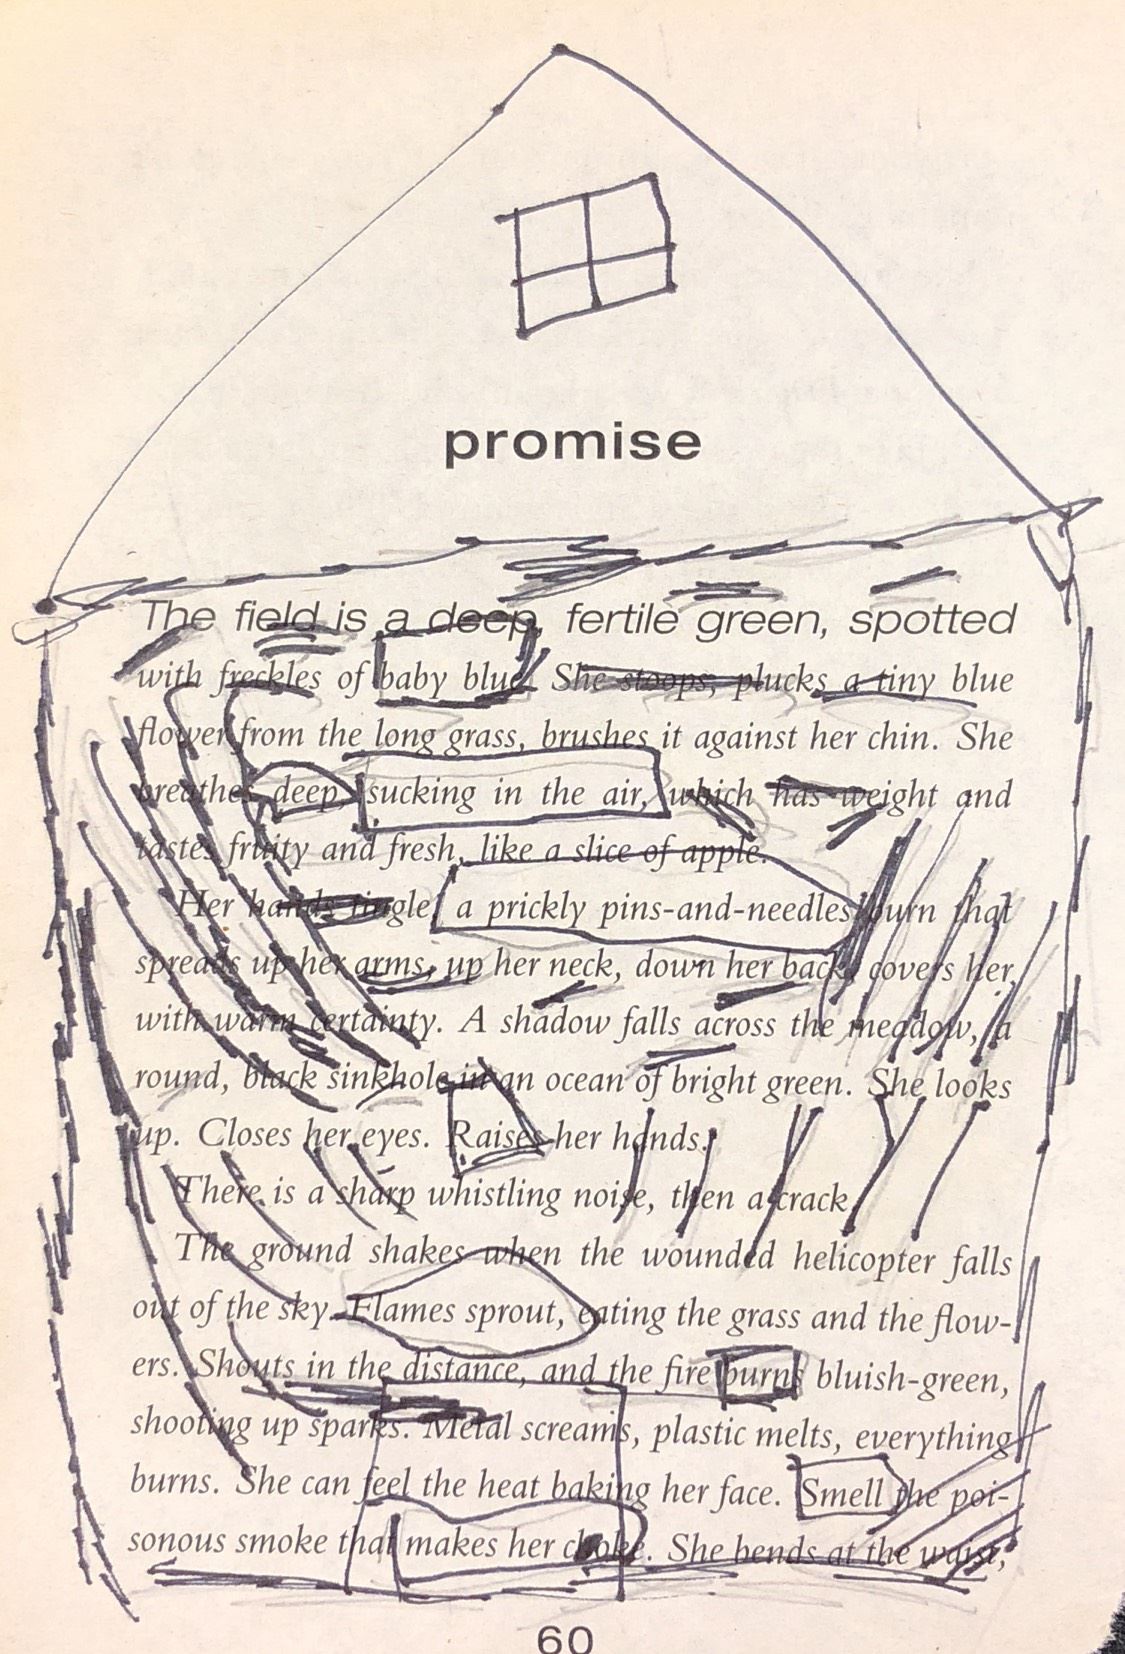 promise
The field is a deep, fertile green, spotted
with freckles of baby blue. She stoops, plucks a tiny blue
flower from the long grass, brushes it against her chin. She
breathes deep, sucking in the air, which has weight and
tastes fruity and fresh, like a slice of apple.
Her hands tingle, a prickly pins-and-needles burn that
spreads up her arms, up her neck, down her back, covers her
with warm certainty. A shadow falls across the meadow, a
round, black sinkhole in an ocean of bright green. She looks
up. Closes her eyes. Raises her hands.
There is a sharp whistling noise, then a crack.
The ground shakes when the wounded helicopter falls
out of the sky. Flames sprout, eating the grass and the flow-
ers. Shouts in the distance, and the fire burns bluish-green,
shooting up sparks. Metal screams, plastic melts, everything
burns. She can feel the heat baking her face. Smell the poi-
sonous smoke that makes her choke. She bends at the waist,
60